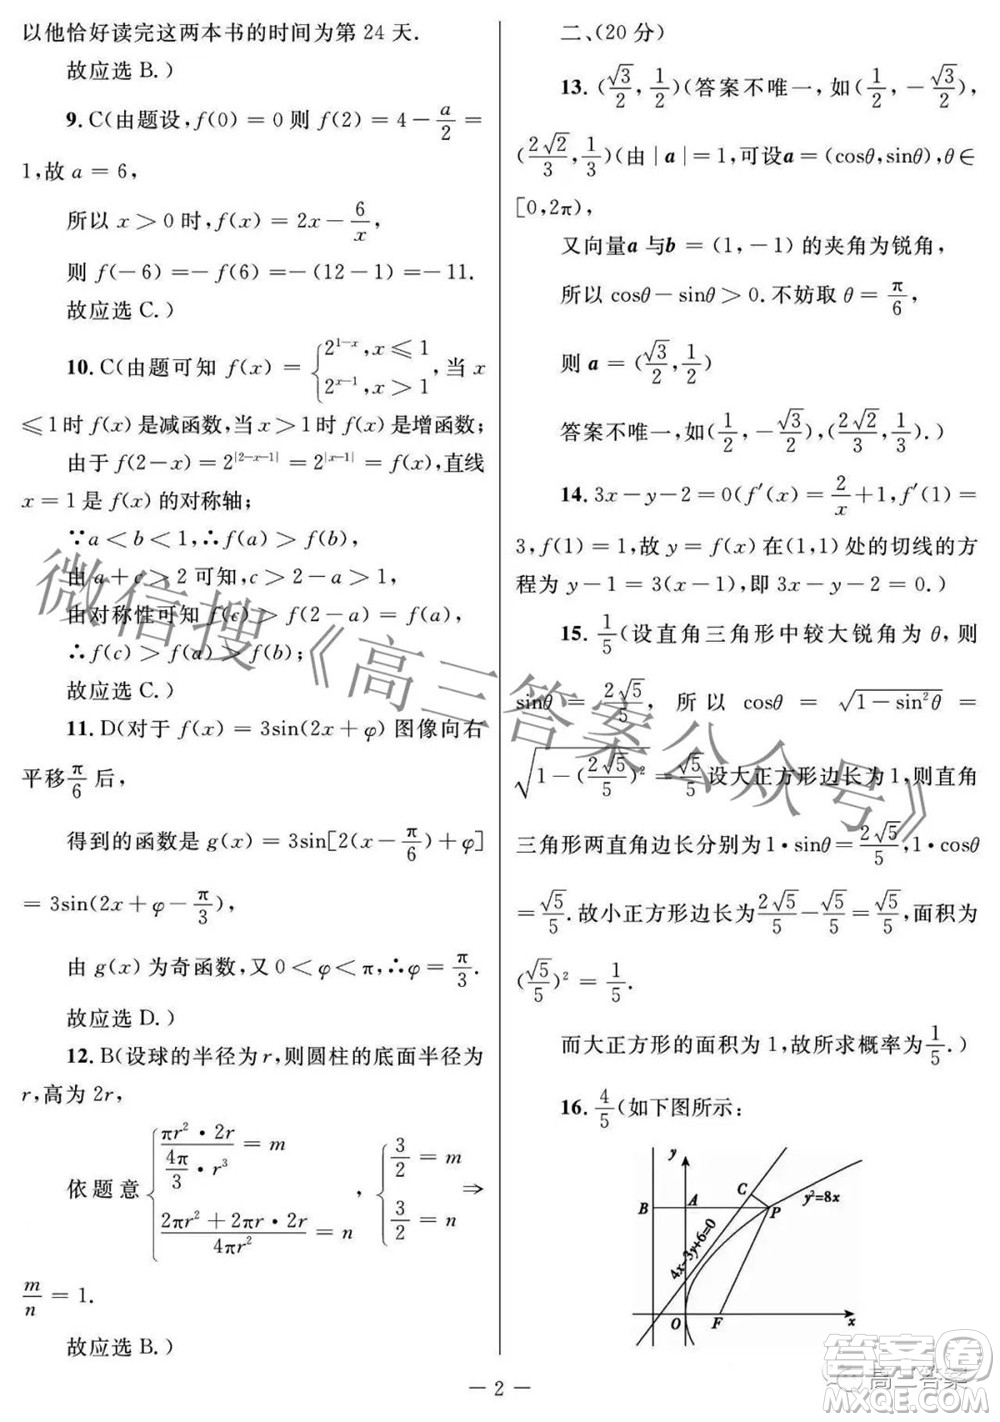 以他恰好读完这两本书的时间为第 24 天.
故应选 B.）
9. C(由题设,f(0)=0 则 f(2)=4-a/2=
1,故 a=6,
所以 x>0 时,f(x)=2x-6/x,
则 f(-6)=-f(6)=-(12-1)=-11.
故应选 C.）
10. C(由题可知 f(x)={2^{1-x},x≤1 2^{x-1},x>1,当 x
≤1时 f(x)是减函数,当 x>1 时 f(x)是增函数;
由于 f(2-x)=2^{|2-x-1|}=2^{|x-1|},直线
x=1 是 f(x)的对称轴;
∵a<b<1,∴f(a)>f(b),
由 a+c>2 可知,c>2-a>1,
由对称性可知 f(c)>f(2-a)=f(a),
∴f(c)>f(a)>f(b).
故应选 C.）
11. D(对于 f(x)=3sin(2x+φ)图像向右
平移π/6后,
得到的函数是 g(x)=3sin[2(x-π/6)+φ]
=3sin(2x+φ-π/3),
由 g(x)为奇函数,又 0<φ<π,∴φ=π/3.
故应选 D.）
12. B(设球的半径为 r,则圆柱的底面半径为
r,高为 2r,
依题意{(πr²·2r)/(4π/3·r³)=m (2πr²+2πr·2r)/(4πr²)=n,{3/2=m 3/2=n ⇒
m/n=1.
故应选 B.）
二、(20 分)
13. (√3/2,1/2)(答案不唯一,如(1/2,-√3/2),
(2√2/3,1/3)(由|a|=1,可设a=(cosθ,sinθ),θ∈
[0,2π),
又向量a与b=(1,-1)的夹角为锐角,
所以 cosθ-sinθ>0.不妨取 θ=π/6,
则 a=(√3/2,1/2)
答案不唯一,如(1/2,-√3/2),(2√2/3,1/3).）
14. 3x-y-2=0(f′(x)=2/x+1,f′(1)=
3,f(1)=1,故 y=f(x)在(1,1)处的切线的方
程为 y-1=3(x-1),即 3x-y-2=0.）
15. 1/5(设直角三角形中较大锐角为 θ,则
sinθ=2√5/5,所以 cosθ=√(1-sin²θ)=
√(1-(2√5/5)²)=√5/5设大正方形边长为1,则直角
三角形两直角边长分别为1·sinθ=2√5/5,1·cosθ
=√5/5.故小正方形边长为2√5/5-√5/5=√5/5,面积为
(√5/5)²=1/5.
而大正方形的面积为 1,故所求概率为1/5.）
16. 4/5(如下图所示:
y
C
B
A
P
y²=8x
4x-3y+6=0
O
F
x
— 2 —
微信搜《高三答案公众号》
答案圈
高三答案